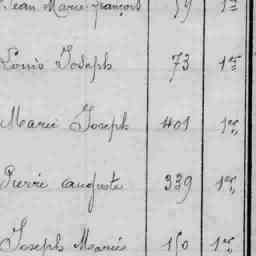 Jean Marie françois 59 1er
Louis Joseph 73 1er
Marie Joseph 401 1er
Pierre auguste 339 1er
Joseph Marie 150 1er